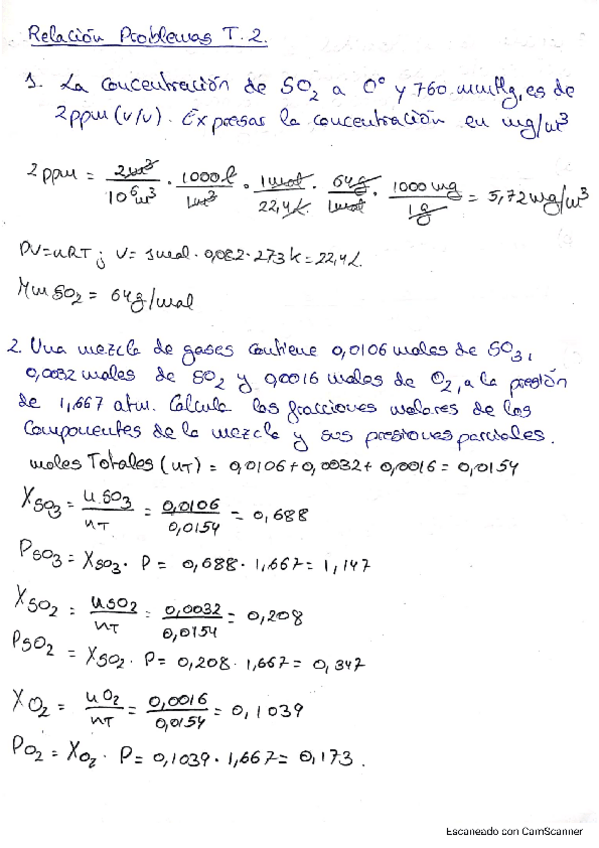 Relación Problemas T.2.
1. La concentración de SO2 a 0° y 760 mmHg, es de
2ppm (v/v). Expresar la concentración en mg/m³
2 ppm = 2m³/10⁶m³ · 1000l/1m³ · 1mol/22,4L · 64g/1mol · 1000mg/1g = 5,72mg/m³
PV=nRT ; V= 1mol · 0,082 · 273k = 22,4L.
Mm SO2 = 64g/mol
2. Una mezcla de gases contiene 0,0106 moles de SO3,
0,0032 moles de SO2 y 0,0016 moles de O2, a la presión
de 1,667 atm. Calcula las fracciones molares de los
componentes de la mezcla y sus presiones parciales.
moles Totales (nT) = 0,0106 + 0,0032 + 0,0016 = 0,0154
XSO3 = nSO3/nT = 0,0106/0,0154 = 0,688
PSO3 = XSO3 · P = 0,688 · 1,667 = 1,147
XSO2 = nSO2/nT = 0,0032/0,0154 = 0,208
PSO2 = XSO2 · P = 0,208 · 1,667 = 0,347
XO2 = nO2/nT = 0,0016/0,0154 = 0,1039
PO2 = XO2 · P = 0,1039 · 1,667 = 0,173.
Escaneado con CamScanner